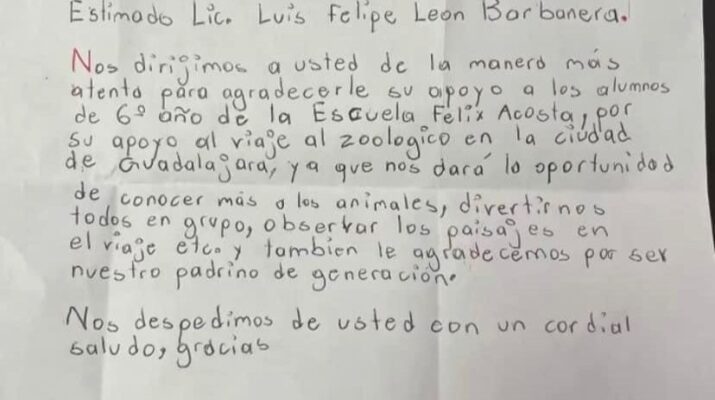 Estimado Lic. Luis Felipe Leon Barbanera.
Nos dirijimos a usted de la manera más
atenta para agradecerle su apoyo a los alumnos
de 6º año de la Escuela Felix Acosta, por
su apoyo al viaje al zoologico en la ciudad
de Guadalajara, ya que nos dará la oportunidad
de conocer más a los animales, divertirnos
todos en grupo, observar los paisajes en
el viaje etc. y tambien le agradecemos por ser
nuestro padrino de generación.
Nos despedimos de usted con un cordial
saludo, gracias